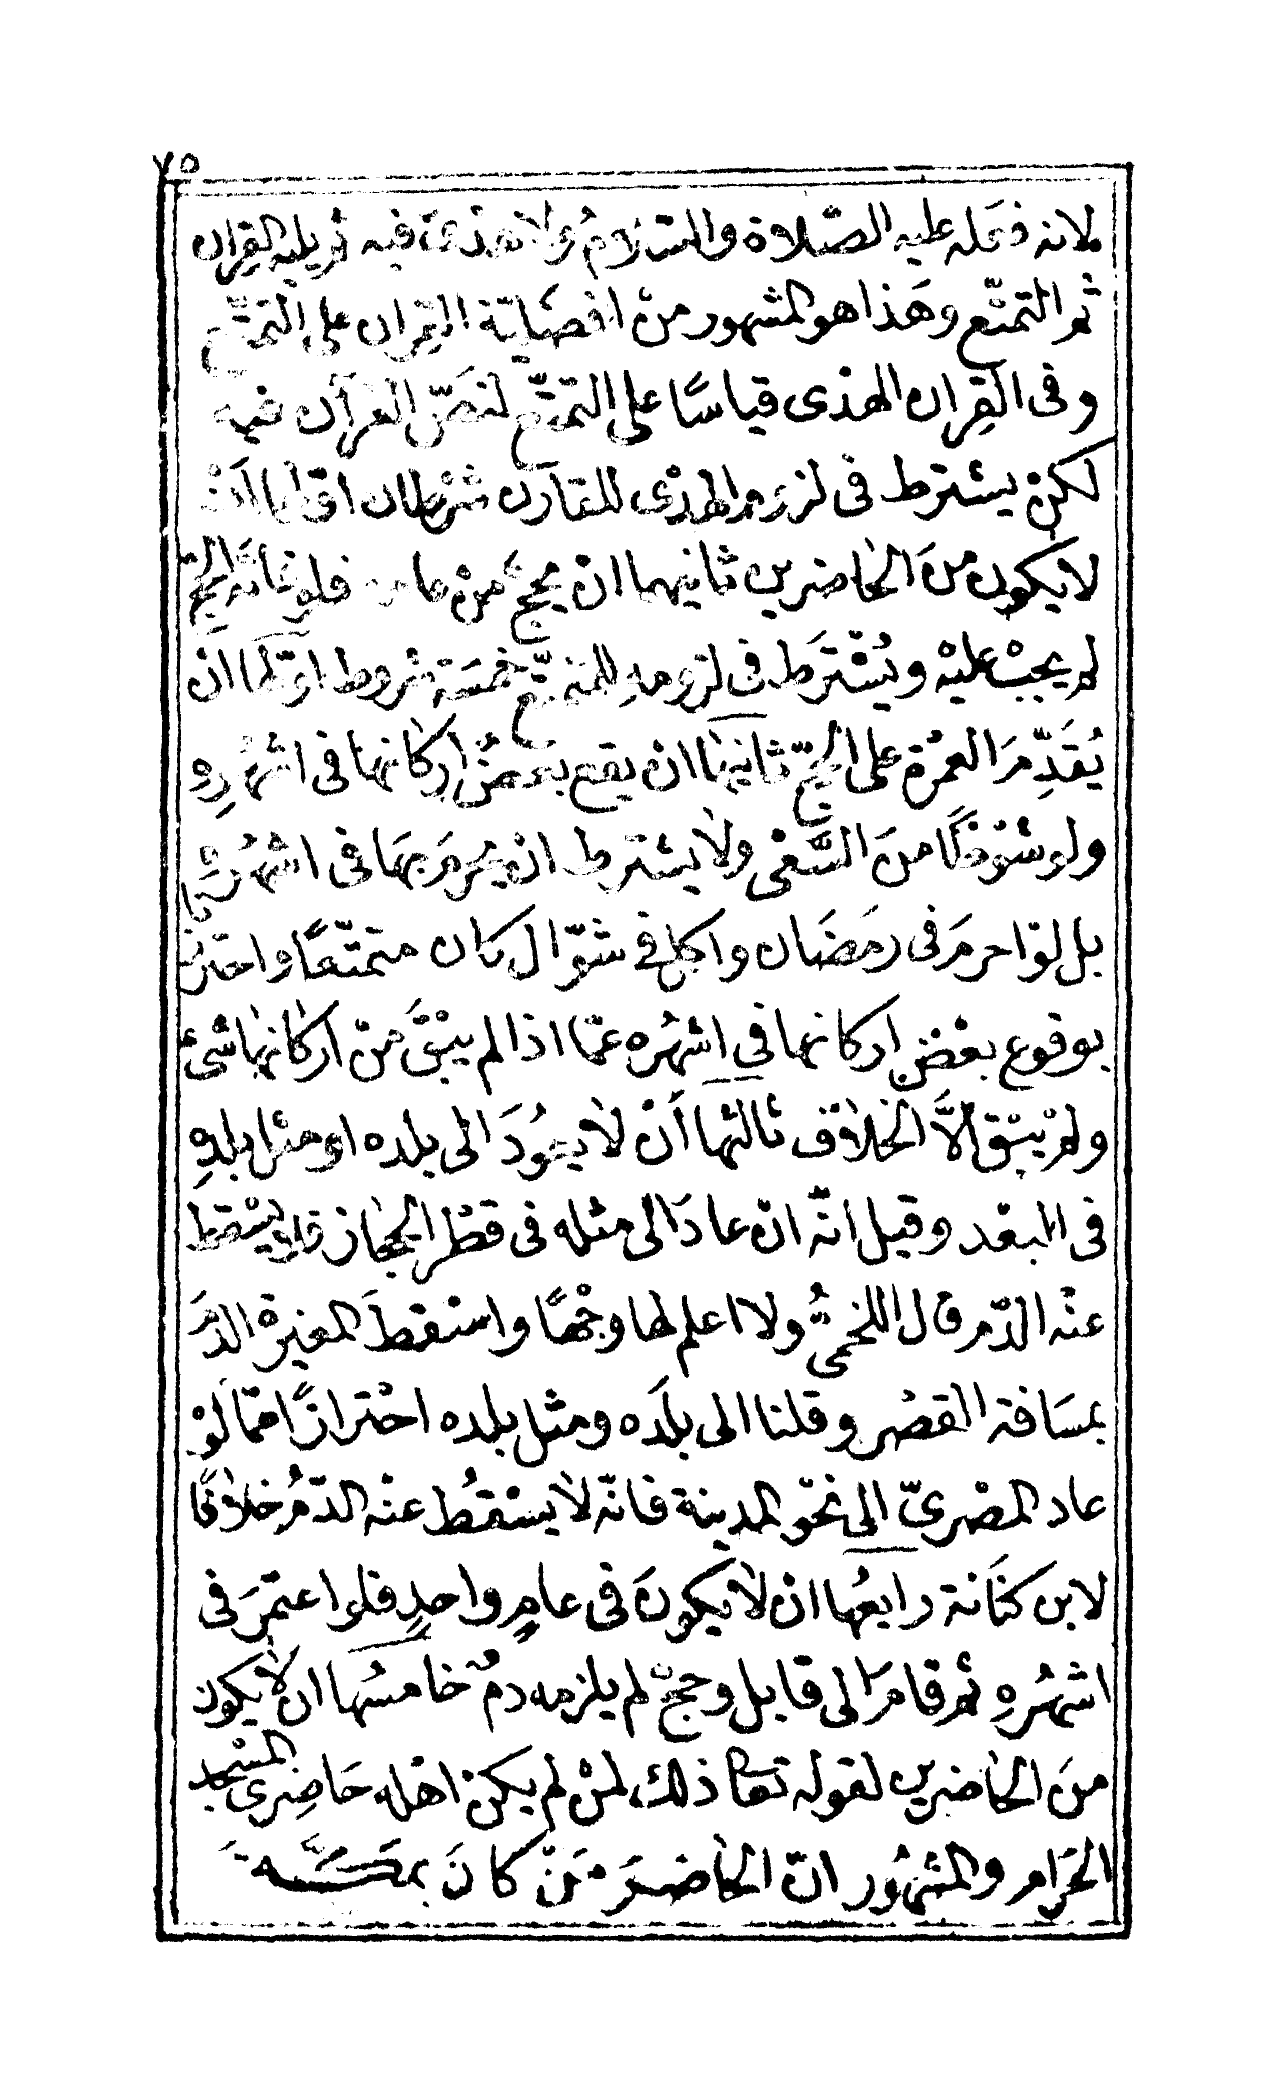 ٧٥
لانه فعله عليه الصّلاة والسّلامُ ولا هَدْىَ فيه ثم يليه القِران
ثم التمتّع وهَذا هو المشهور منْ افضَليّة القِران على التمتّع
وفى القِران الهدْى قياسًا على التمتّع لنصّ القرآن فيه
لكنْ يشترط فى لزوم الهدْى للقارن شرْطان اوّلها أنْ
لا يكون منَ الحاضرين ثانيهما ان يحجّ منْ عامه فلو فاتَه الحجّ
لم يجبْ عليْه ويُشْترَط فى لزومهِ للمتمتّع خمسَة شروط اوّلها انْ
يُقَدِّمَ العمْرة على الحجّ ثانيها انْ يقع بعضُ اركانها فى اشهُرِه
ولو شوْطًا منَ السَّعْى ولا يشترط انْ يحرمَ بهَا فى اشهُر الحج
بل لوْ احرمَ فى رمَضَان واكمل فى شوّال كان متمتّعًا واحترز
بوقوع بعْض اركانها في اشهُره عمّا اذا لم يبْقَ منْ اركانها شئ
ولمْ يبْق الاَّ الحلاق ثالثها أنْ لا يعُودَ الى بلده او مثل بلدِهِ
فى البعْد وقيل انّه انْ عادَ الى مثله فى قطْر الحجاز فلا يسْقط
عنْه الدّم قال اللخمىُّ ولا اعلم لها وجْهًا واسْقطَ المغيرة الدَّمَ
بمسَافة القصْر وقلنا الى بلَده ومثل بلده احْترازًا ممّا لَوْ
عاد المصْرىّ الى نحْو المدينة فانّه لا يسْقُط عنْه الدّمُ خلافًا
لابن كنَانة رابعُها انْ لا يكونَ فى عامٍ واحدٍ فلو اعتمَرَ فى
اشهُرهِ ثم قامَ الى قابل وحجّ لم يلزمه دمٌ خامسُها ان لا يكون
منَ الحاضرين لقوله تعا ذلك لمنْ لم يكنْ اهْله حَاضِرى المسْجد
الحَرام والمشهُور انّ الحاضرَ مَنْ كانَ بمكّة